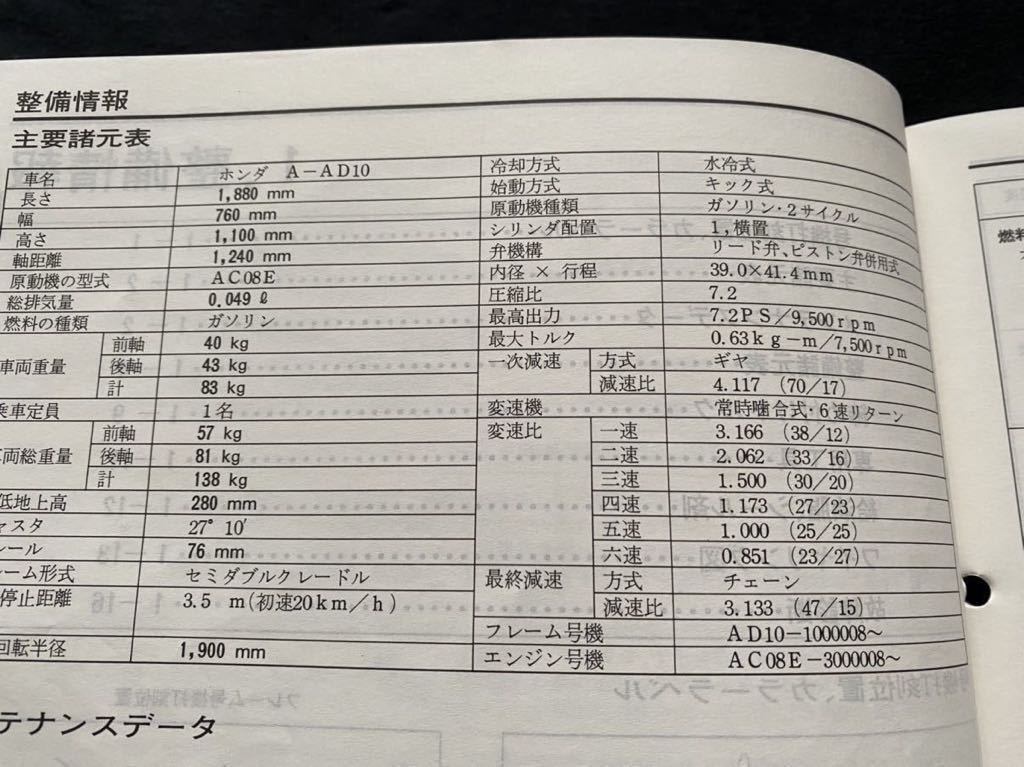 整備情報
主要諸元表
車名 ホンダ A-AD10
長さ 1,880 mm
幅 760 mm
高さ 1,100 mm
軸距離 1,240 mm
原動機の型式 AC08E
総排気量 0.049 ℓ
燃料の種類 ガソリン
車両重量 前軸 40 kg
後軸 43 kg
計 83 kg
乗車定員 1名
両総重量 前軸 57 kg
後軸 81 kg
計 138 kg
低地上高 280 mm
ャスタ 27° 10′
レール 76 mm
ーム形式 セミダブルクレードル
停止距離 3.5 m(初速20km/h)
回転半径 1,900 mm
冷却方式 水冷式
始動方式 キック式
原動機種類 ガソリン・2サイクル
シリンダ配置 1,横置
弁機構 リード弁、ピストン弁併用式
内径 × 行程 39.0×41.4mm
圧縮比 7.2
最高出力 7.2PS/9,500rpm
最大トルク 0.63kg-m/7,500rpm
一次減速 方式 ギヤ
減速比 4.117 (70/17)
変速機 常時噛合式・6速リターン
変速比 一速 3.166 (38/12)
二速 2.062 (33/16)
三速 1.500 (30/20)
四速 1.173 (27/23)
五速 1.000 (25/25)
六速 0.851 (23/27)
最終減速 方式 チェーン
減速比 3.133 (47/15)
フレーム号機 AD10-1000008~
エンジン号機 AC08E-3000008~
テナンスデータ
燃料